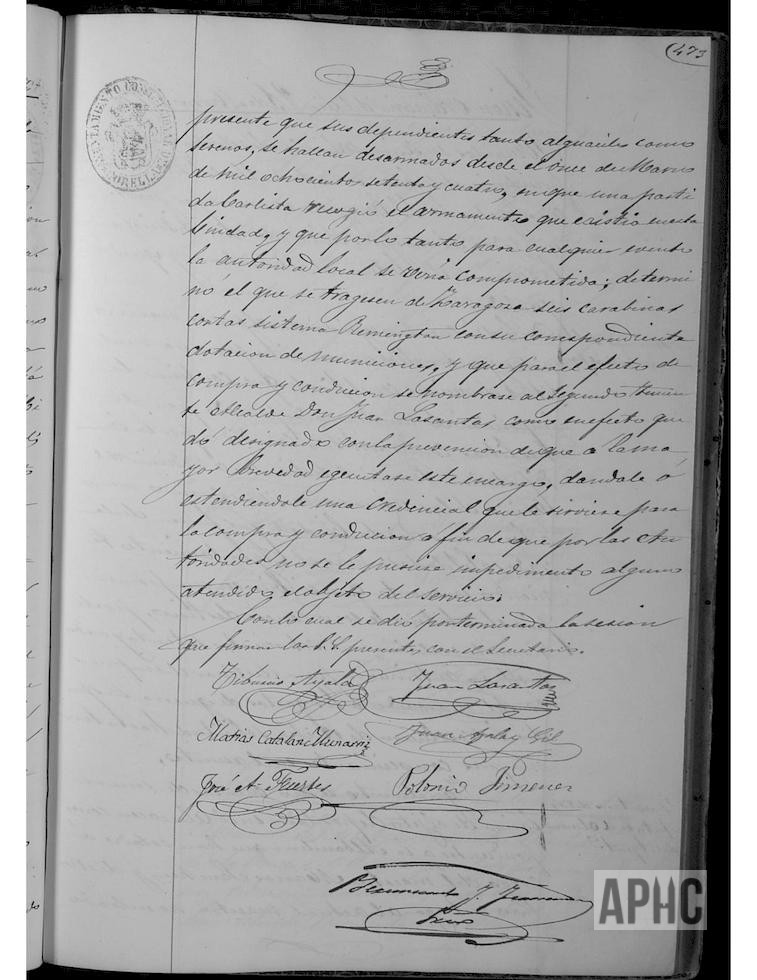 473
AYUNTAMIENTO CONSTITUCIONAL CORELLA
presente que sus dependientes tanto alguaciles como
serenos, se hallan desarmados desde el once de Marzo
de mil ochocientos setenta y cuatro, en que una parti
da Carlista recogió el armamento que existia en esta
Ciudad, y que por lo tanto para cualquier evento
la autoridad local se veria comprometida; determi
no el que se tragesen de Zaragoza seis carabinas
cortas sistema Remington con su correspondiente
dotacion de municiones, y que para el efecto de
compra y conducion se nombrase al Segundo Tenien
te Alcalde Don Juan Lasantas como en efecto que
dó designado con la prevencion de que a la ma
yor brevedad egecutase este encargo, dandole o
estendiendole una credencial que le sirviese para
la compra y conducion a fin de que por las Au
toridades no se le pusiese impedimento alguno
atendido el objeto del servicio.
Con lo cual se dió por terminada la sesion
que firman los S.S. presentes con el Secretario.
Tiburcio Ayala Juan Lasantas
Matias Catalan Juan Ayala y Gil
José A. Fuertes Polonio Jimenez
APHC